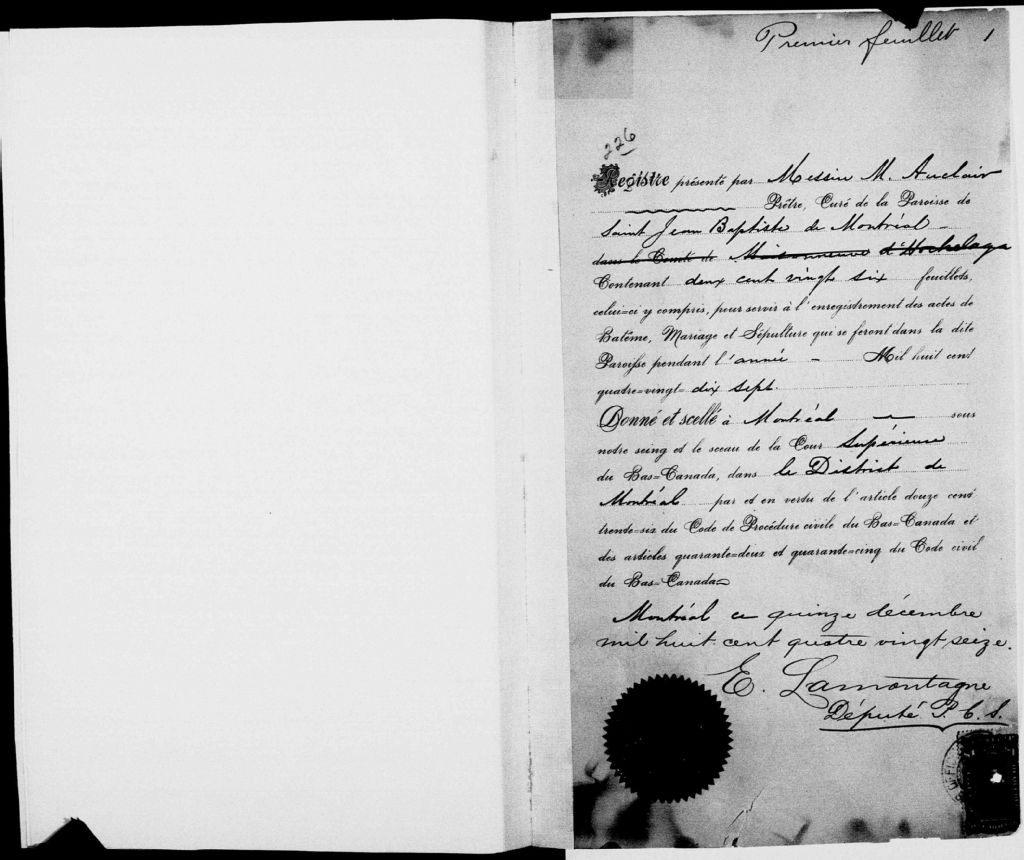 Premier feuillet 1
226
Registre présenté par Messire M. Auclair
Prêtre, Curé de la Paroisse de
Saint Jean Baptiste de Montréal
dans le Comté de Maisonneuve d'Hochelaga
Contenant deux cent vingt six feuillets,
celui=ci y compris, pour servir à l'enregistrement des actes de
Batême, Mariage et Sépulture qui se feront dans la dite
Paroisse pendant l'année - Mil huit cent
quatre=vingt= dix sept.
Donné et scellé à Montréal — sous
notre seing et le sceau de la Cour Supérieure
du Bas=Canada, dans le District de
Montréal par et en vertu de l'article douze cent
trente=six du Code de Procédure civile du Bas=Canada et
des articles quarante=deux et quarante=cinq du Code civil
du Bas=Canada
Montréal ce quinze décembre
mil huit cent quatre vingt seize.
E. Lamontagne
Député P. C. S.